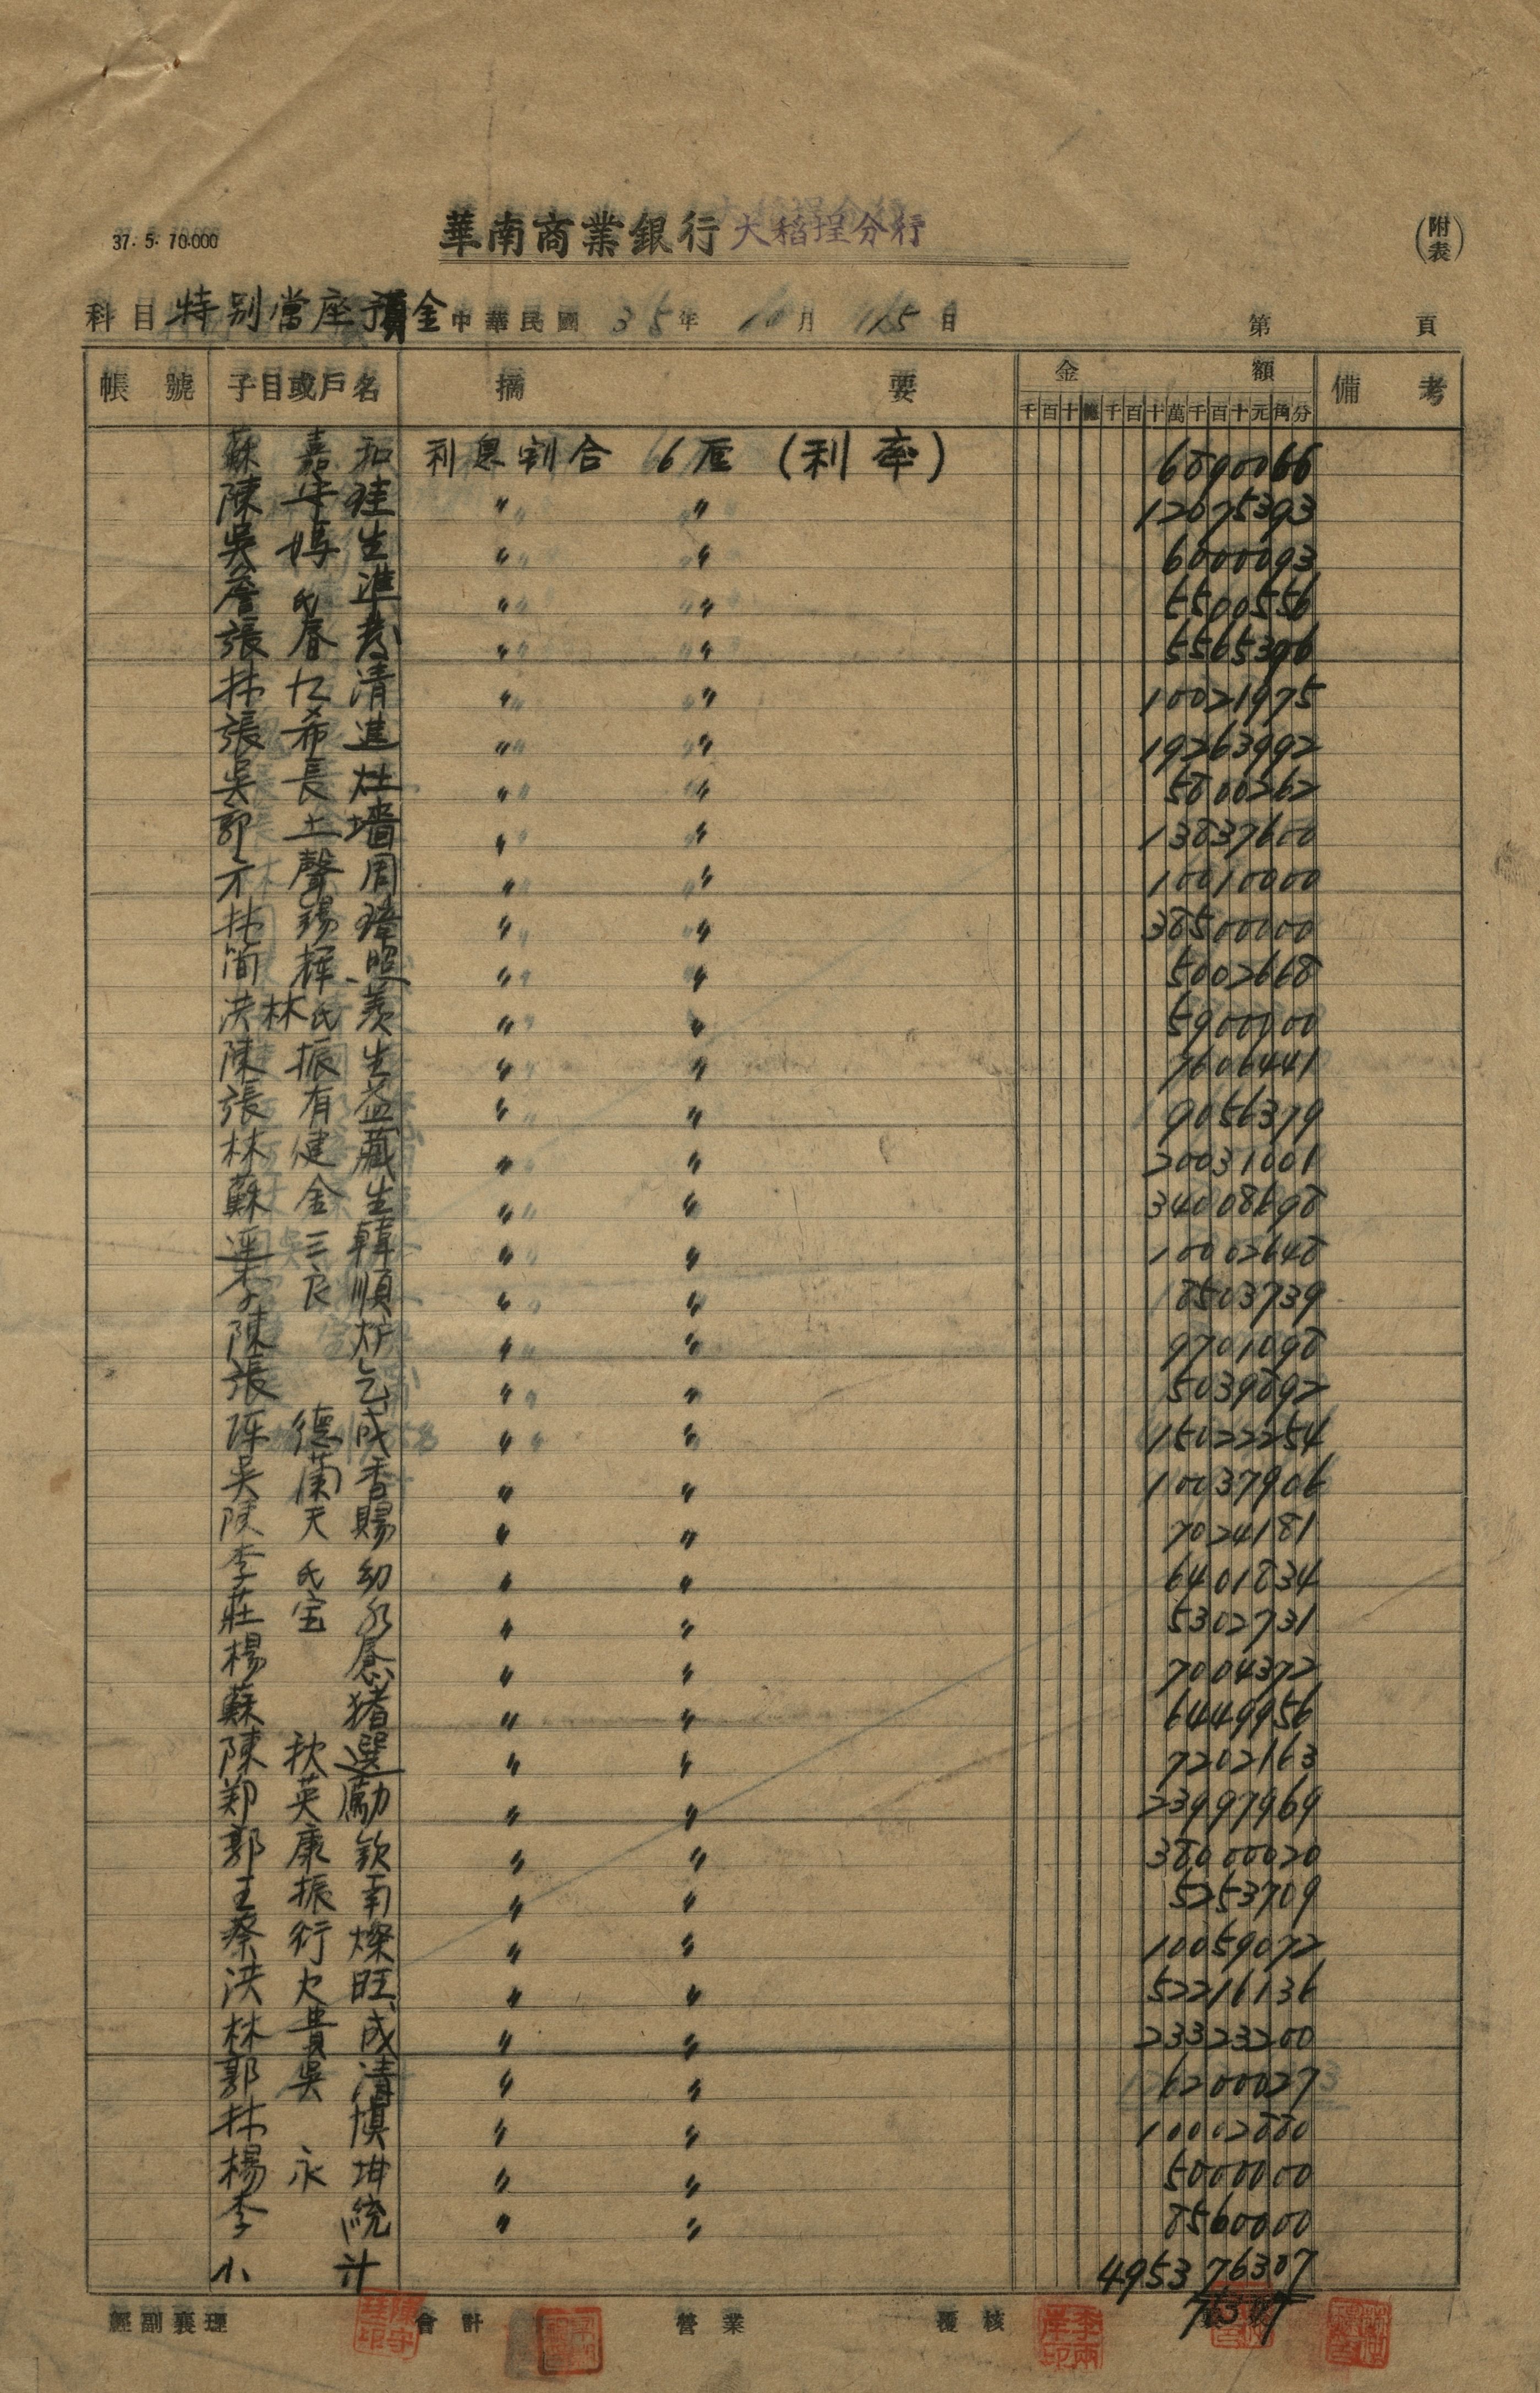 37. 5. 70.000
華南商業銀行 大稻埕分行
(附表)
科目 特別當座預金 中華民國 35年 10月 15日 第 頁
帳號 子目或戶名 摘要 金額 備考
千百十億千百十萬千百十元角分
蘇嘉和 利息割合 6厘 (利率) 6890066
陳牛珪 〃 〃 12075393
吳媽生 〃 〃 6000093
詹氏準 〃 〃 5500556
張春 〃 〃 5565396
林九清 〃 〃 10021975
張希進 〃 〃 19263992
吳長灶 〃 〃 5800262
郭土墻 〃 〃 13837600
方聲周 〃 〃 10010000
林錫璋 〃 〃 38500000
簡輝照 〃 〃 5002668
洪林氏羨 〃 〃 5900000
陳振生 〃 〃 7606441
張有益 〃 〃 9056379
林健藏 〃 〃 20031001
蘇金生 〃 〃 34008698
三韓 〃 〃 10002648
李良順 〃 〃 8503739
陳炉 〃 〃 9701098
張乞 〃 〃 5039892
陈德成 〃 〃 15022254
吳蘭香 〃 〃 10037906
陳天賜 〃 〃 7024181
李氏幼 〃 〃 6401834
莊宝 〃 〃 5302731
楊 〃 〃 7004372
蘇猪 〃 〃 6449956
陳秋選 〃 〃 7202163
郑英勵 〃 〃 23997969
郭康欽 〃 〃 38000020
王振南 〃 〃 5253709
蔡衍燦 〃 〃 10059072
洪火旺 〃 〃 52216136
林貴成 〃 〃 23323200
郭吳清 〃 〃 6200027
林慎 〃 〃 10002880
楊永坤 〃 〃 5000000
李統 〃 〃 8560000
小計 495376307
76307
經副襄理 會計 營業 覆核